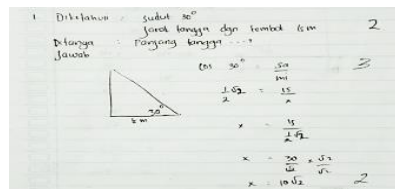 1 Diketahui : sudut 30°
jarak tangga dgn tembok 15 m 2
Ditanya : Panjang tangga ....?
Jawab
Cos 30° = sa/mi 3
1/2 √2 = 15/x
30°
15 m
x = 15 / 1/2 √2
x = 30/√2 x √2/√2
x = 10√2 2